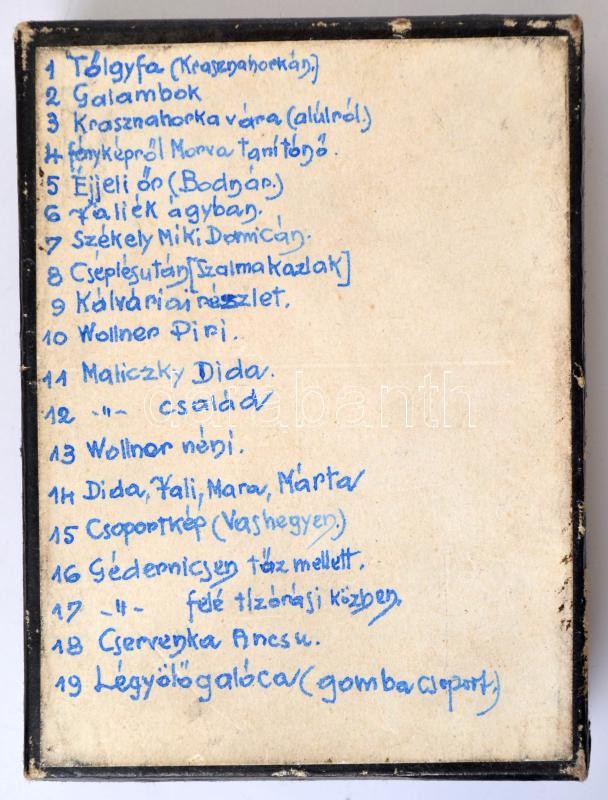 1 Tölgyfa (Krasznahorkán.)
2 Galambok
3 Krasznahorka vára (alúlról.)
4 fényképről Morva tanítónő.
5 Éjjeli őr (Bodnár.)
6 Valiék ágyban.
7 Székely Miki Domicán.
8 Cséplésután [Szalmakazlak]
9 Kálváriai részlet.
10 Wollner Piri.
11 Maliczky Dida.
12 -"- család
13 Wollner néni.
14 Dida, Vali, Mara, Márta
15 Csoportkép (Vashegyen.)
16 Gédernicsen tűz mellett.
17 -"- felé tízórási közben.
18 Cservenka Ancsu.
19 Légyölő galóca (gomba csoport.)
darabanth